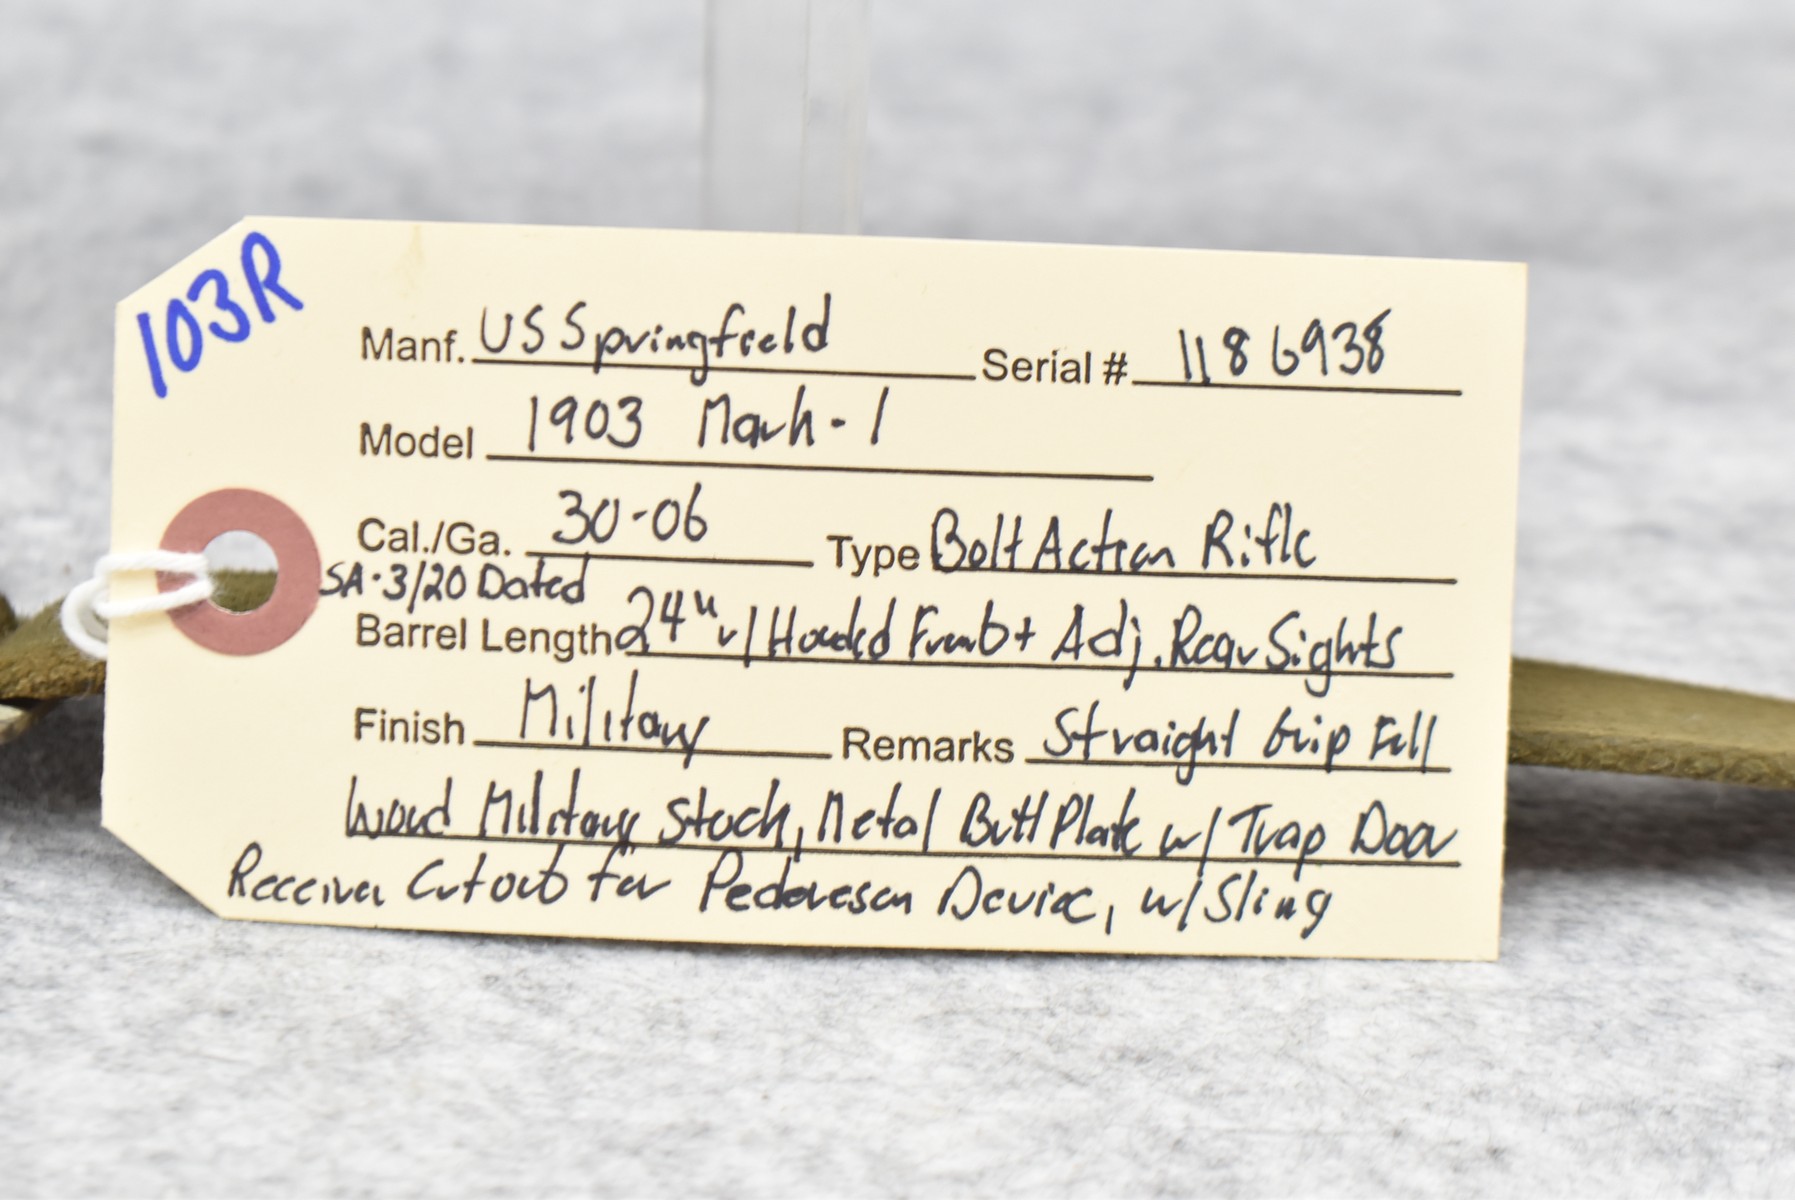 103R
Manf. US Springfield Serial # 1186938
Model 1903 Mark-1
Cal./Ga. 30-06 Type Bolt Action Rifle
SA·3/20 Dated
Barrel Length 24" w/ Hooded Front + Adj. Rear Sights
Finish Military Remarks Straight Grip Full
Wood Military Stock, Metal Butt Plate w/ Trap Door
Receiver Cutout for Pedoresen Device, w/ Sling